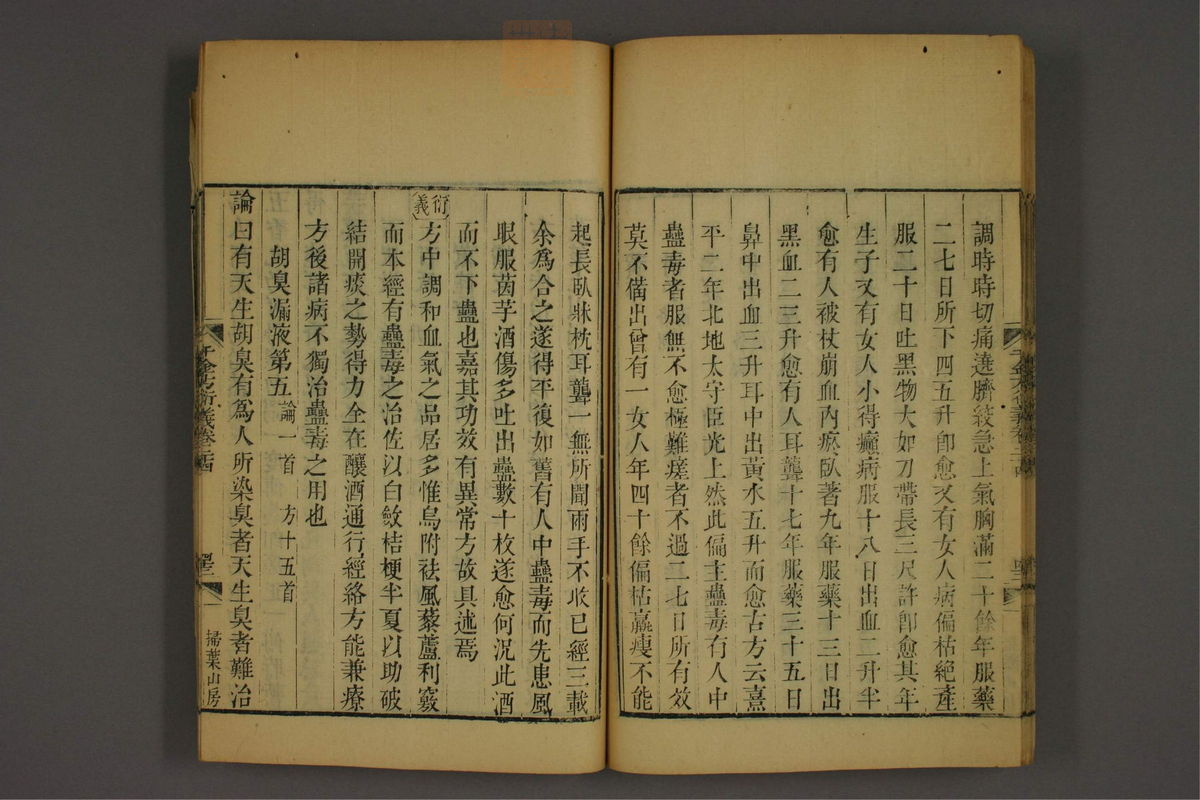 調時時切痛遶臍絞急上氣胸滿二十餘年服藥
二七日所下四五升卽愈又有女人病偏枯絕產
服二十日吐黑物大如刀帶長三尺許卽愈其年
生子又有女人小得癲病服十八日出血二升半
愈有人被杖崩血內瘀臥著九年服藥十三日出
黑血二三升愈有人耳聾十七年服藥三十五日
鼻中出血三升耳中出黃水五升而愈古方云熹
平二年北地太守臣光上然此偏主蠱毒有人中
蠱毒者服無不愈極難瘥者不過二七日所有效
莫不備出曾有一女人年四十餘偏枯羸瘦不能
起長臥牀枕耳聾一無所聞兩手不收已經三載
余爲合之遂得平復如舊有人中蠱毒而先患風
眼服茵芋酒傷多吐出蠱數十枚遂愈何況此酒
而不下蠱也嘉其功效有異常方故具述焉
衍義
方中調和血氣之品居多惟烏附祛風藜蘆利竅
而本經有蠱毒之治佐以白斂桔梗半夏以助破
結開痰之勢得力全在釀酒通行經絡方能兼療
方後諸病不獨治蠱毒之用也
胡臭漏液第五 論一首 方十五首
論曰有天生胡臭有爲人所染臭者天生臭者難治
千金方衍義卷二十四
掃葉山房